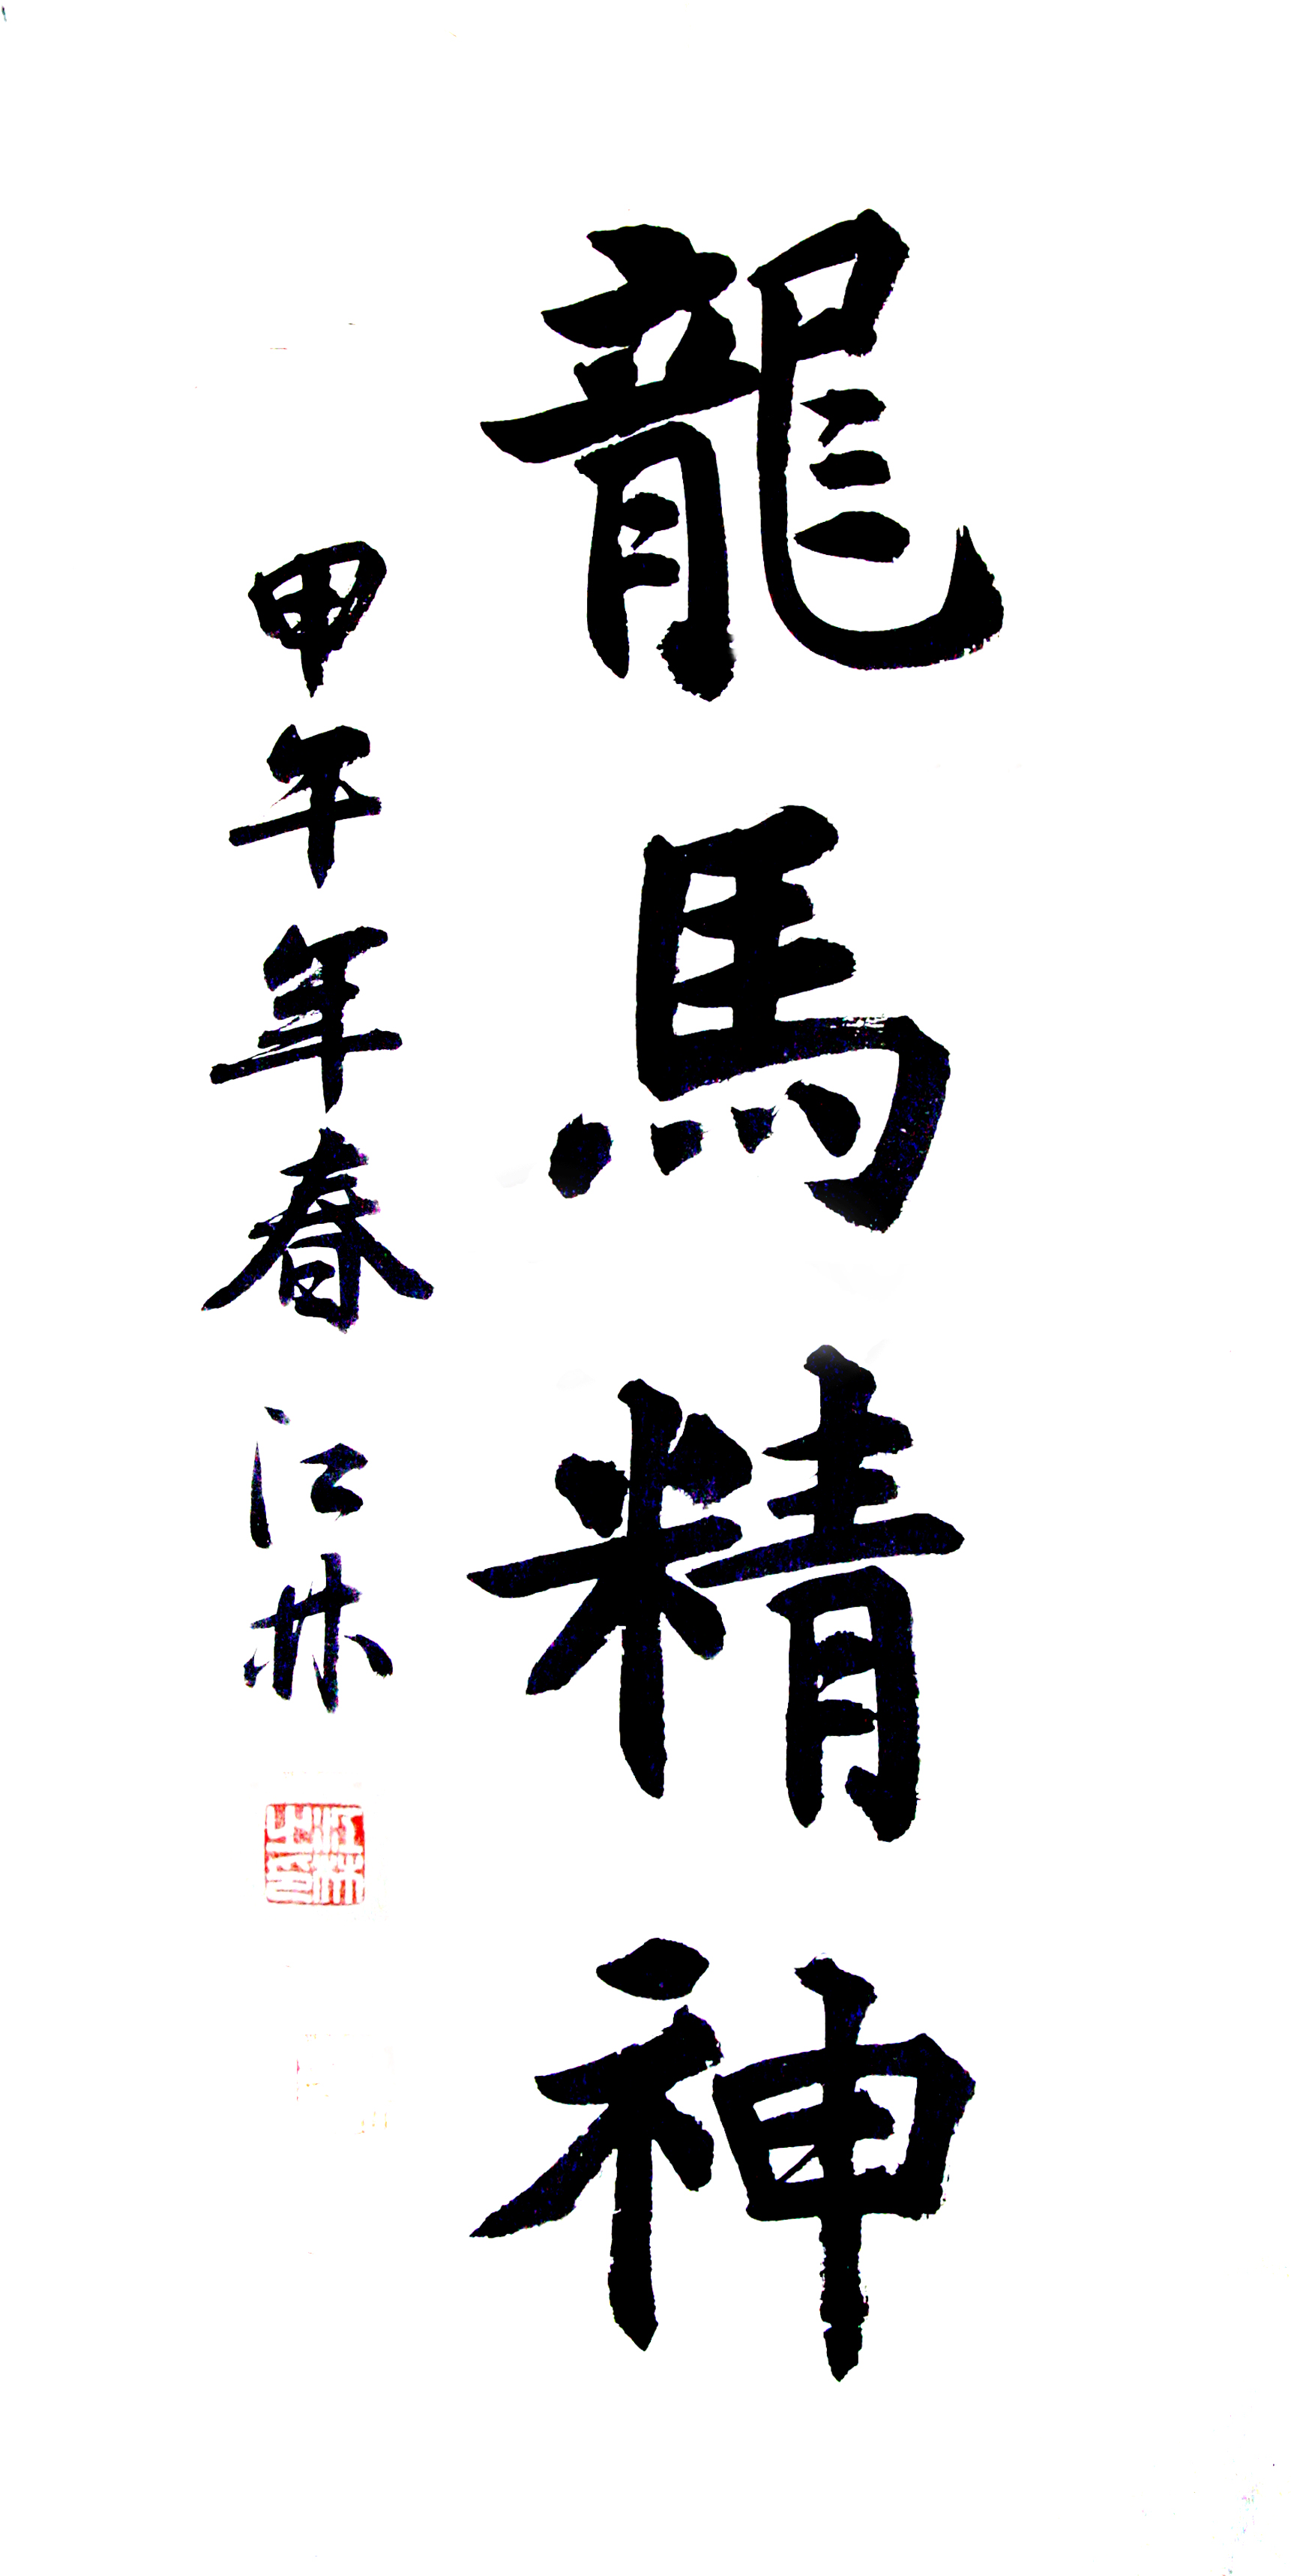 龍馬精神
甲午年春 江林
江林之印